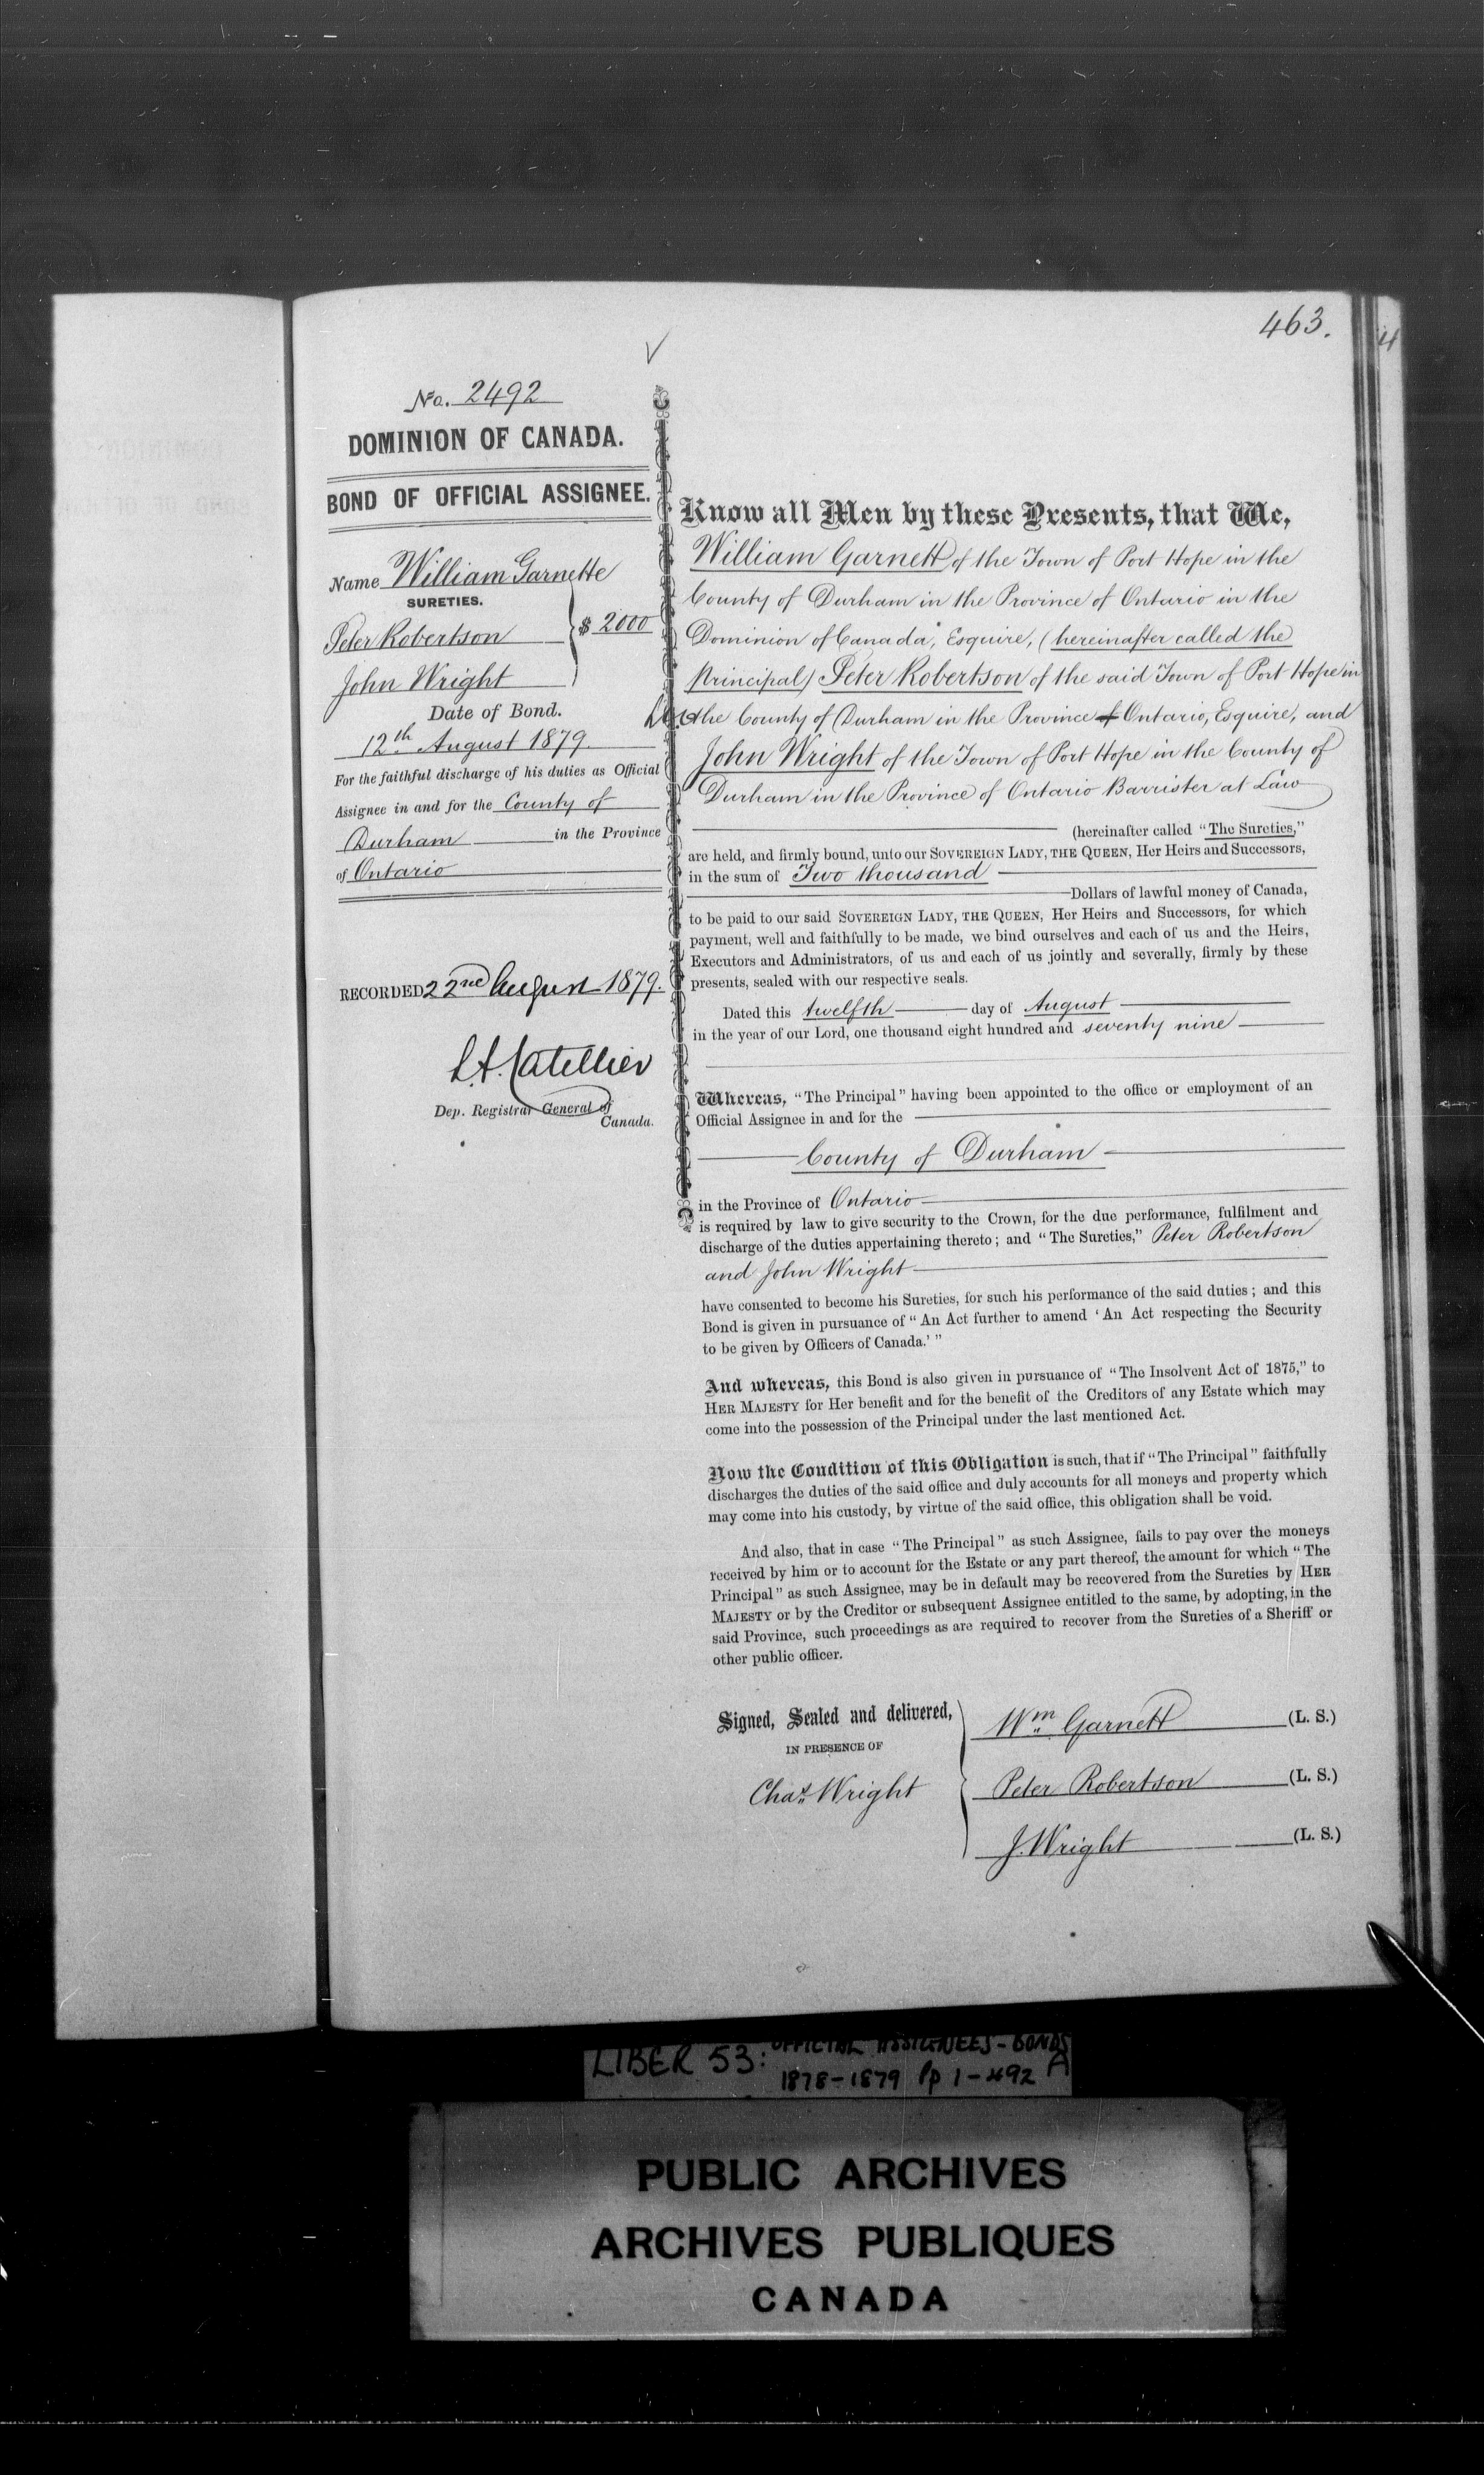 463.
No. 2492
DOMINION OF CANADA.
BOND OF OFFICIAL ASSIGNEE.
Name William Garnette
SURETIES.
Peter Robertson
$ 2000
John Wright
Date of Bond.
12th August 1879.
For the faithful discharge of his duties as Official
Assignee in and for the County of
Durham in the Province
of Ontario
RECORDED 22nd August 1879.
L.A. Catellier
Dep. Registrar General of
Canada.
Know all Men by these Presents, that We,
William Garnett of the Town of Port Hope in the
County of Durham in the Province of Ontario in the
Dominion of Canada, Esquire, (hereinafter called the
Principal) Peter Robertson of the said Town of Port Hope in
the County of Durham in the Province of Ontario, Esquire, and
John Wright of the Town of Port Hope in the County of
Durham in the Province of Ontario Barrister at Law
(hereinafter called "The Sureties,"
are held, and firmly bound, unto our SOVEREIGN LADY, THE QUEEN, Her Heirs and Successors,
in the sum of Two thousand
Dollars of lawful money of Canada,
to be paid to our said SOVEREIGN LADY, THE QUEEN, Her Heirs and Successors, for which
payment, well and faithfully to be made, we bind ourselves and each of us and the Heirs,
Executors and Administrators, of us and each of us jointly and severally, firmly by these
presents, sealed with our respective seals.
Dated this twelfth day of August
in the year of our Lord, one thousand eight hundred and seventy nine
Whereas, "The Principal" having been appointed to the office or employment of an
Official Assignee in and for the
County of Durham
in the Province of Ontario
is required by law to give security to the Crown, for the due performance, fulfilment and
discharge of the duties appertaining thereto; and "The Sureties," Peter Robertson
and John Wright
have consented to become his Sureties, for such his performance of the said duties; and this
Bond is given in pursuance of "An Act further to amend 'An Act respecting the Security
to be given by Officers of Canada.'"
And whereas, this Bond is also given in pursuance of "The Insolvent Act of 1875," to
HER MAJESTY for Her benefit and for the benefit of the Creditors of any Estate which may
come into the possession of the Principal under the last mentioned Act.
Now the Condition of this Obligation is such, that if "The Principal" faithfully
discharges the duties of the said office and duly accounts for all moneys and property which
may come into his custody, by virtue of the said office, this obligation shall be void.
And also, that in case "The Principal" as such Assignee, fails to pay over the moneys
received by him or to account for the Estate or any part thereof, the amount for which "The
Principal" as such Assignee, may be in default may be recovered from the Sureties by HER
MAJESTY or by the Creditor or subsequent Assignee entitled to the same, by adopting, in the
said Province, such proceedings as are required to recover from the Sureties of a Sheriff or
other public officer.
Signed, Sealed and delivered,
IN PRESENCE OF
Chas. Wright
Wm. Garnett (L. S.)
Peter Robertson (L. S.)
J. Wright (L. S.)
LIBER 53: OFFICIAL ASSIGNEES - BONDS
1878-1879 Pp 1-492 A
PUBLIC ARCHIVES
ARCHIVES PUBLIQUES
CANADA